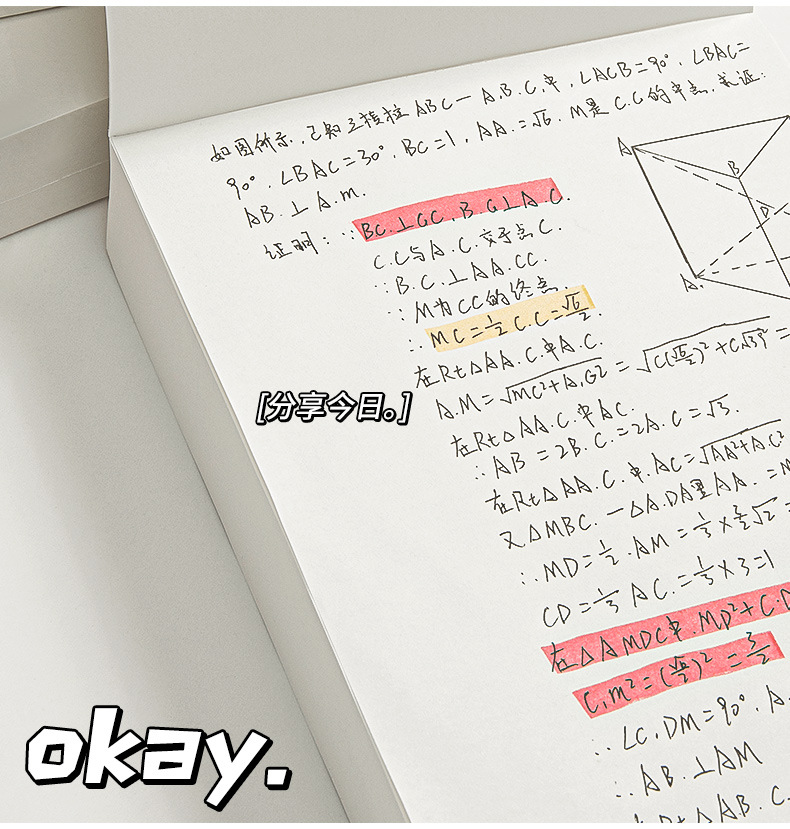 如图所示，已知三棱柱ABC－A.B.C.中，∠ACB=90°，∠BAC=
90°，∠BAC=30°，BC=1，AA.=√6．M是C.C的中点，求证：
AB.⊥A.m.
证明：∵BC.⊥GC，B.G⊥A.C.
C.C与A.C.交于点C.
∴B.C.⊥AA.CC.
∵M为CC的终点.
∴MC=½C.C=√6/2.
在Rt△AA.C.中A.C.
A.M=√MC²+A₁G²=√C(√6/2)²+C√3)²=
在Rt△AA.C.中AC.
∴AB=2B.C.=2A.C=√3.
在Rt△AA.C.中.AC=√AA²+AC²
又△MBC.一△A.DA里AA.=M
∴MD=½.AM=⅓×3/2√2=
CD=⅓AC.=⅓×3=1
在△AMDC中.MD²+C.D
C₁m²=(√6/2)²=3/2
∴∠C.DM=90°，A.
∴AB.⊥AM
A
B
D
A.
[分享今日。]
okay.